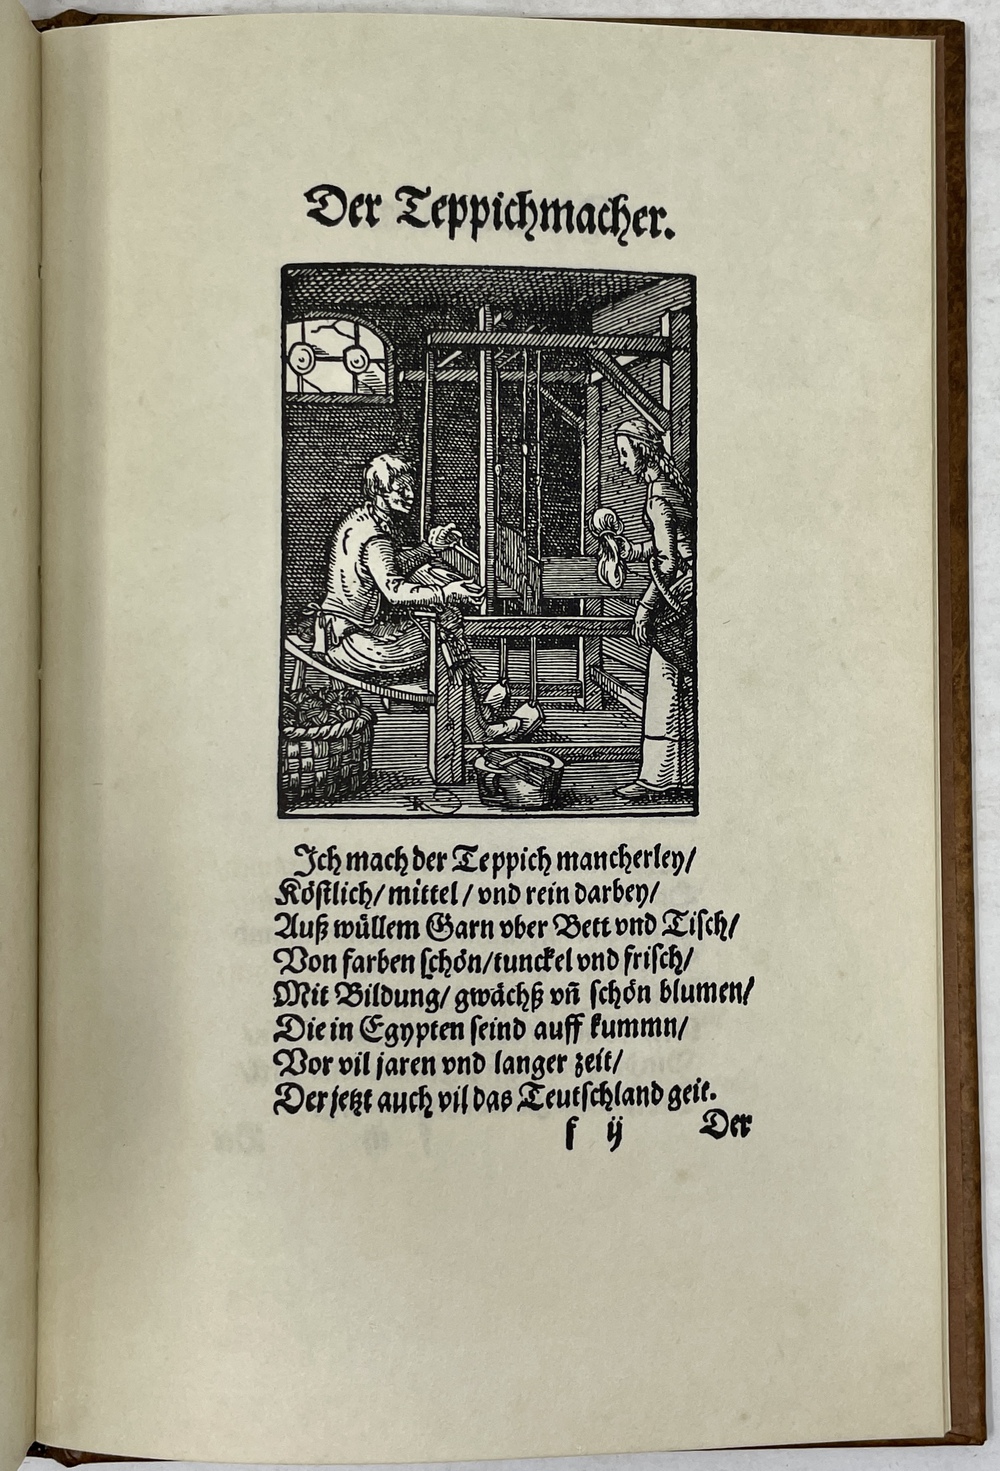 Der Teppichmacher.
Ich mach der Teppich mancherley/
Köstlich/ mittel/ vnd rein darbey/
Auß wüllem Garn vber Bett vnd Tisch/
Von farben schön/tunckel vnd frisch/
Mit Bildung/ gwächß vñ schön blumen/
Die in Egypten seind auff kummn/
Vor vil jaren vnd langer zeit/
Der jetzt auch vil das Teutschland geit.
f ij Der